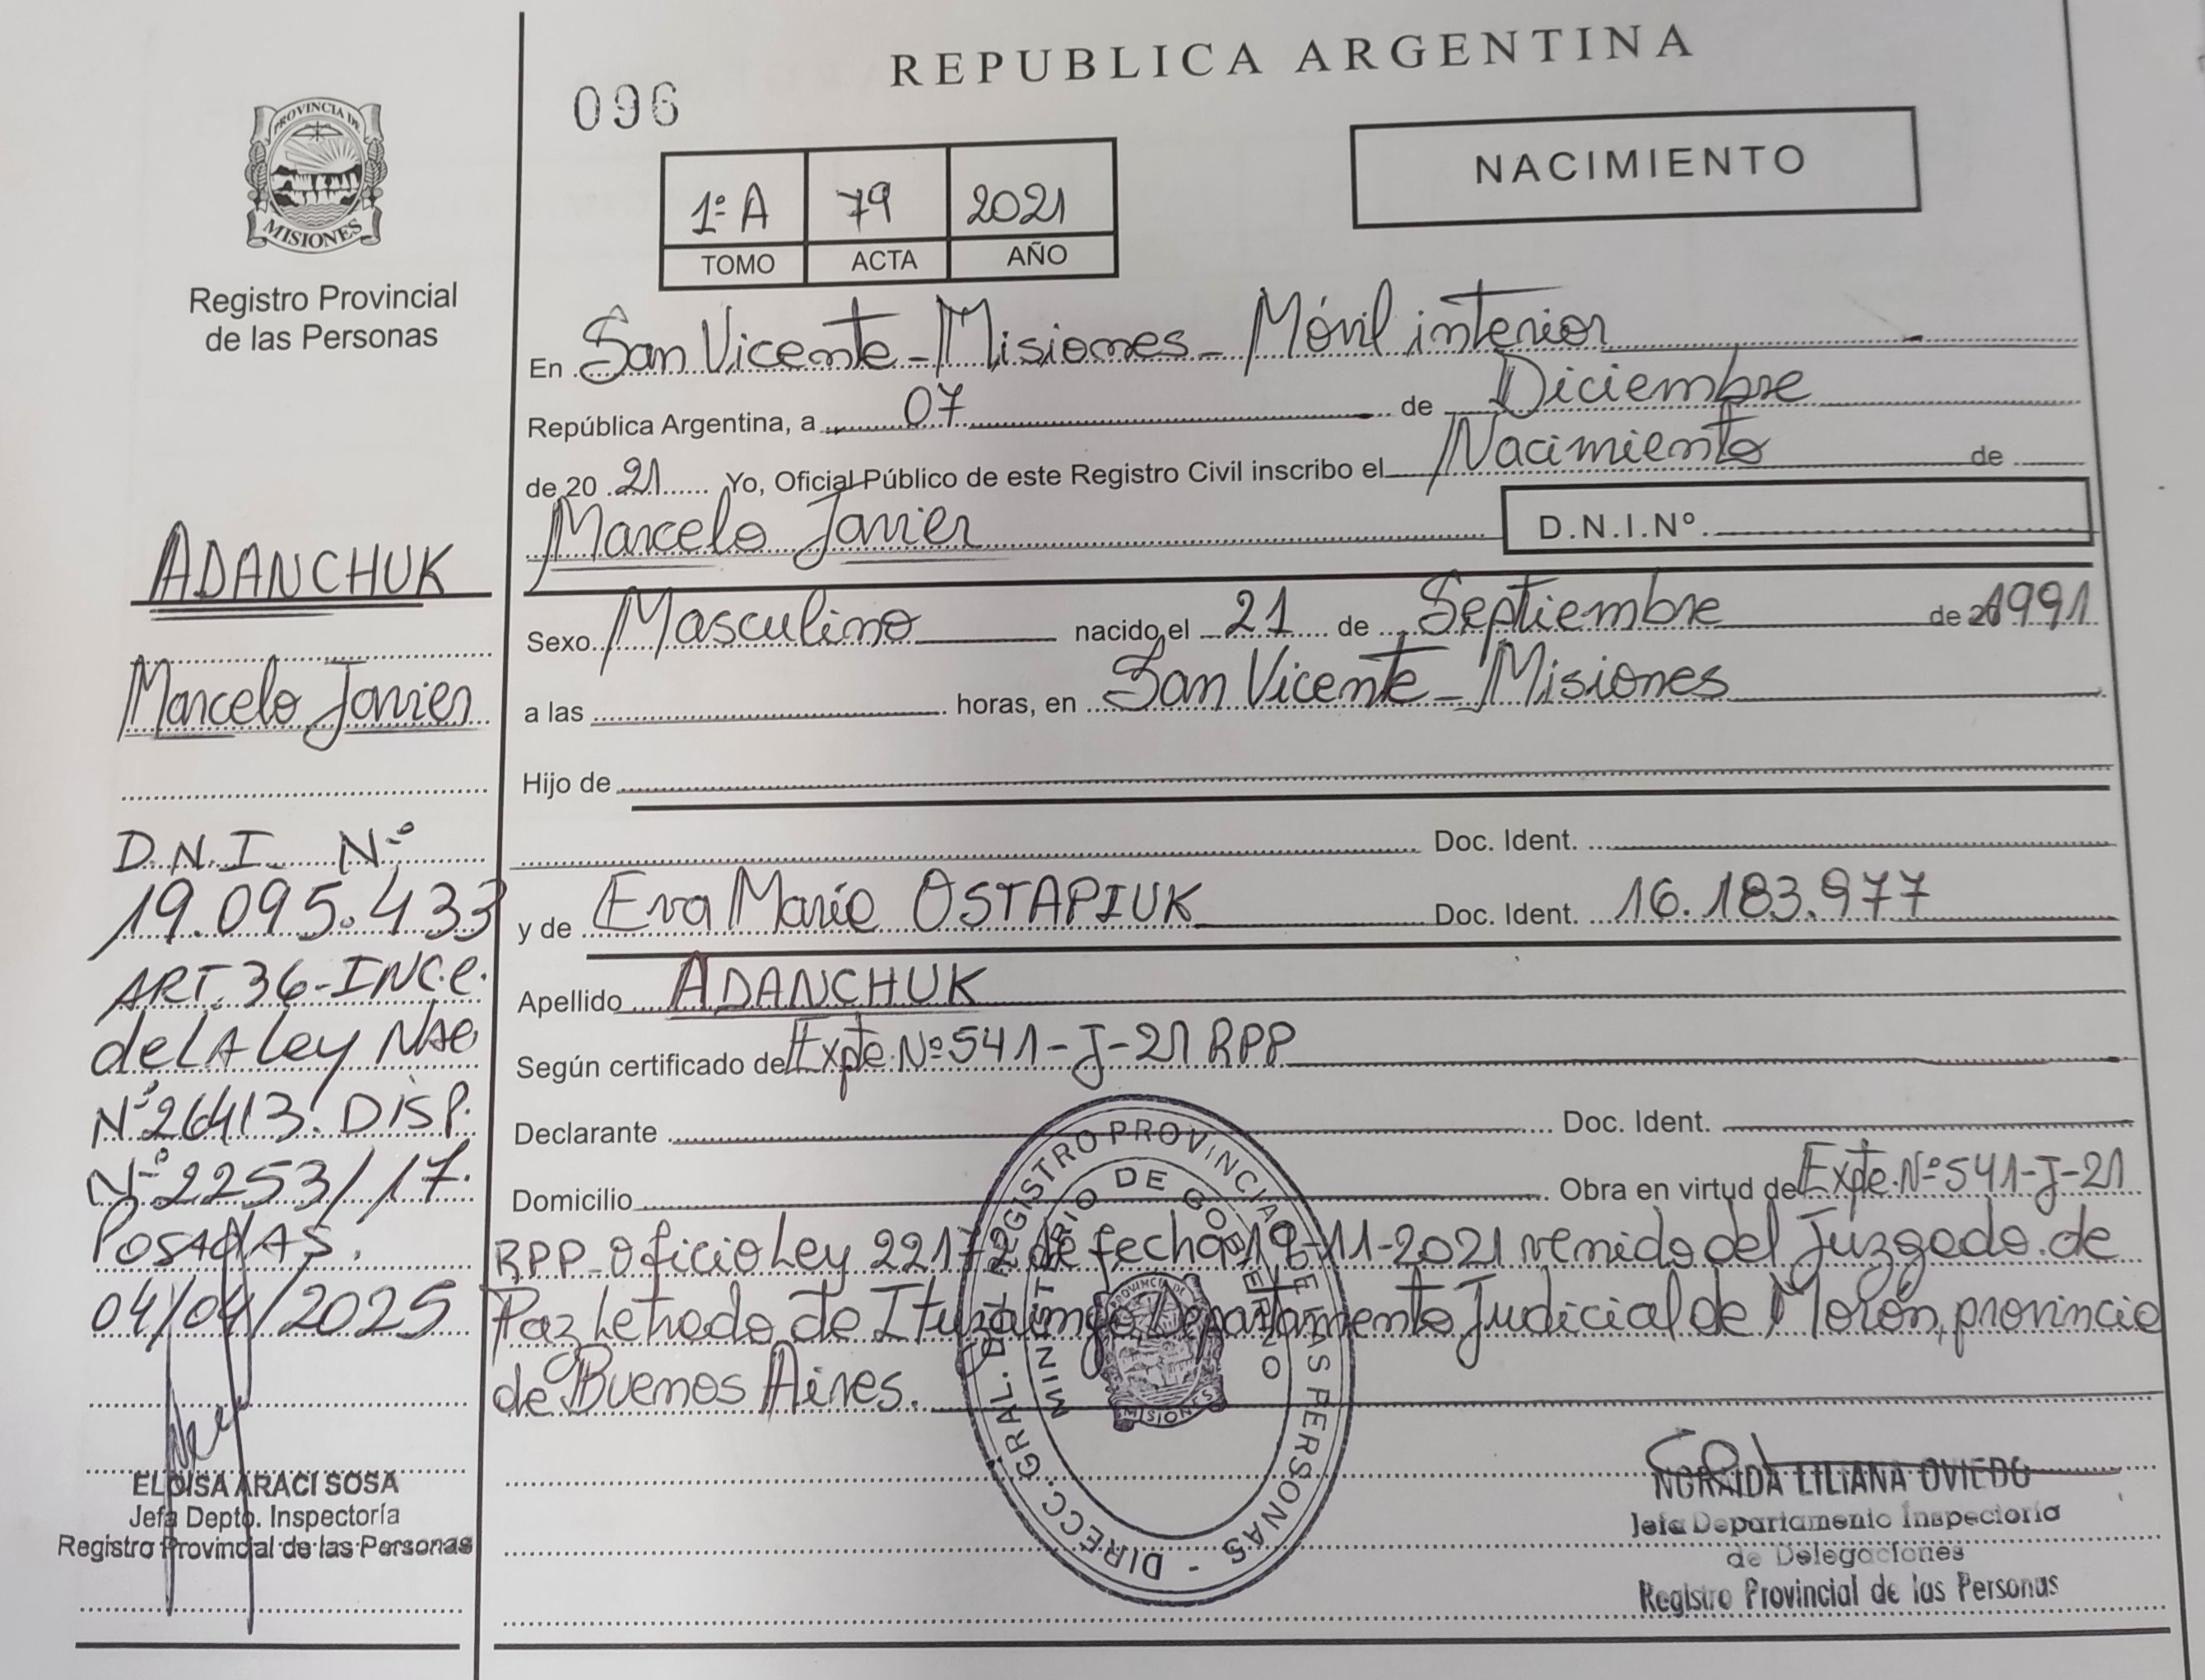 REPUBLICA ARGENTINA
096
NACIMIENTO
1º A 79 2021
TOMO ACTA AÑO
PROVINCIA DE
MISIONES
Registro Provincial
de las Personas
En San Vicente - Misiones - Móvil interior
República Argentina, a 07 de Diciembre
de 20 21 Yo, Oficial Público de este Registro Civil inscribo el Nacimiento de
Marcelo Javier D.N.I.Nº
Sexo Masculino nacido el 21 de Septiembre de 1991
a las horas, en San Vicente - Misiones
Hijo de
Doc. Ident.
y de Eva María OSTAPIUK Doc. Ident. 16.183.977
Apellido ADANCHUK
Según certificado de Expte. Nº 541-J-21 RPP
Declarante Doc. Ident.
Domicilio Obra en virtud de Expte. Nº 541-J-21
RPP - Oficio Ley 22172 de fecha 19-11-2021 venido del Juzgado de
Paz Letrado de Ituzaingó Departamento Judicial de Morón, provincia
de Buenos Aires.
ADANCHUK
Marcelo Javier
D.N.I. Nº
19.095.433
ART. 36 - INC.C.
de LA Ley NAC
Nº 26413. DISP.
Nº 2253/17.
POSADAS.
04/04/2025
ELOISA ARACI SOSA
Jefa Depto. Inspectoría
Registro Provincial de las Personas
DIRECC. GRAL. DEL REGISTRO PROVINCIAL DE LAS PERSONAS -
MINISTERIO DE GOBIERNO
PROVINCIA DE
MISIONES
NORAIDA LILIANA OVIEDO
Jefa Departamento Inspectoría
de Delegaciones
Registro Provincial de las Personas